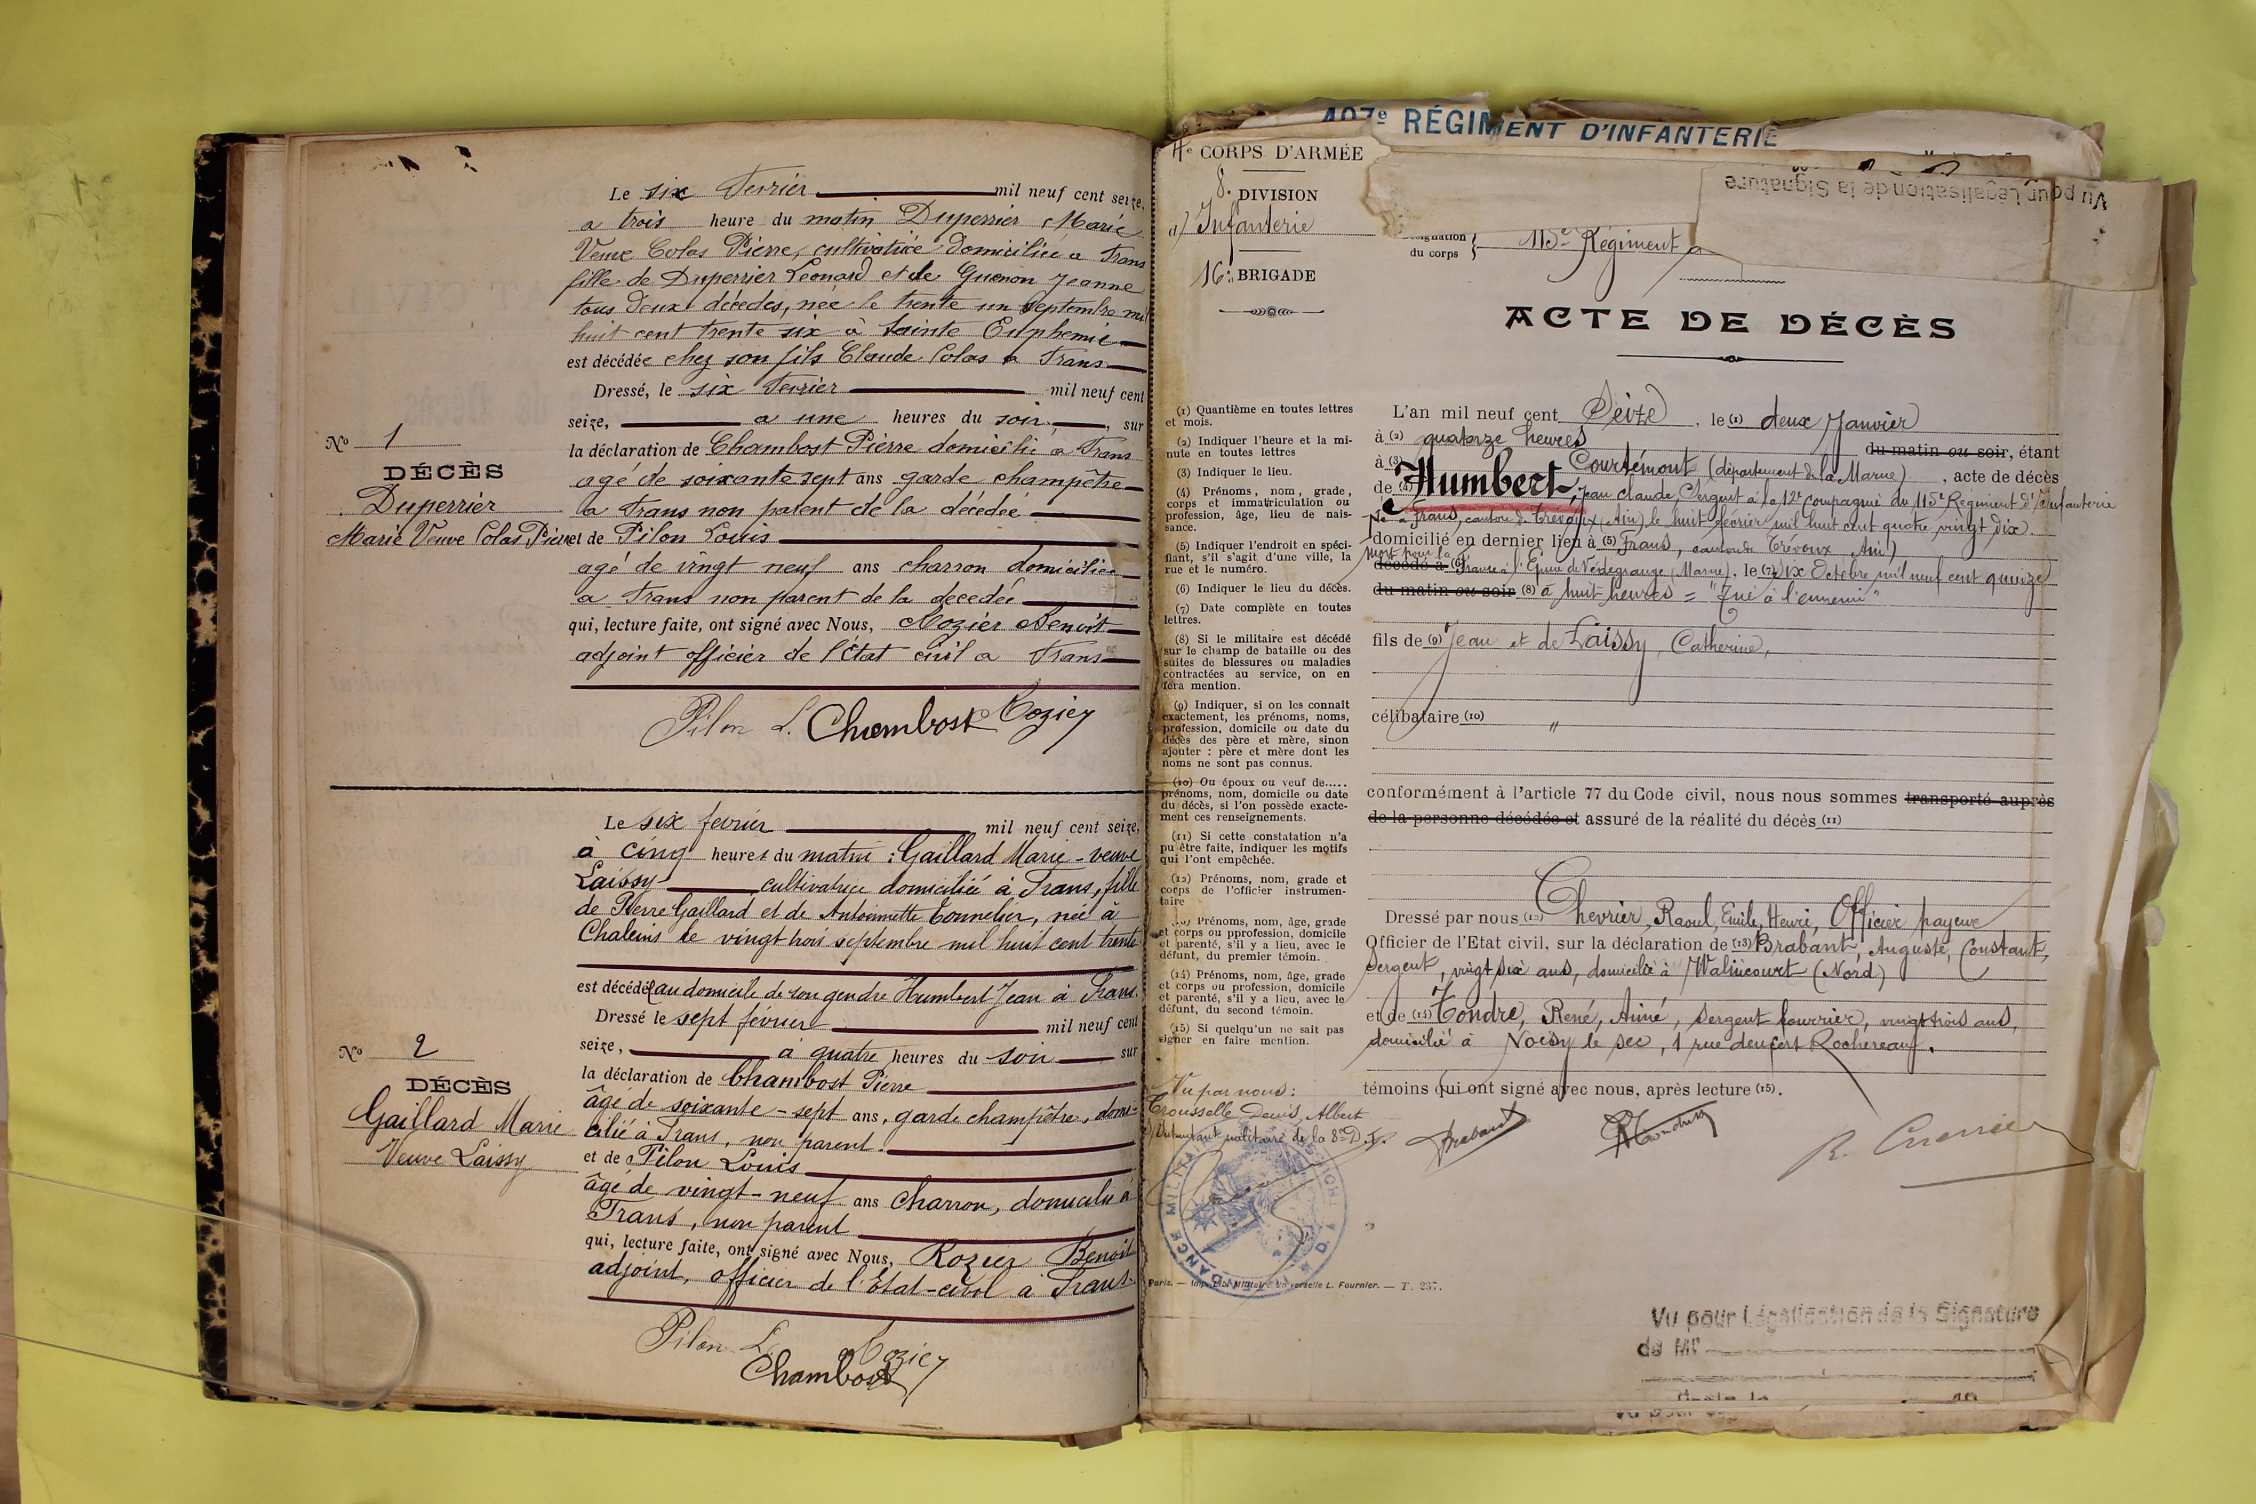 Le six Fevrier mil neuf cent seize,
a trois heure du matin Duperrier Marie
Veuve Colas Pierre, cultivatrice domiciliée a Frans
fille de Duperrier Leonard et de Guenon Jeanne
tous deux décedes, née le trente un Septembre mil
huit cent trente six à Sainte Euphemie
est décédée chez son fils Claude Colas a Frans
Dressé, le six Fevrier mil neuf cent
seize, a une heures du soir, sur
No 1
la déclaration de Chambost Pierre domicilié a Frans
DÉCÈS
agé de soixante sept ans garde champêtre
Duperrier
a Frans non parent de la décedée
Marie Veuve Colas Pierre
et de Pilon Louis
agé de vingt neuf ans charron domicilié
a Frans non parent de la decedée
qui, lecture faite, ont signé avec Nous, Rozier Benoit
adjoint officier de l'État civil a Frans
Pilon L. Chambost Rozier
Le six fevrier mil neuf cent seize,
à cinq heures du matin : Gaillard Marie - veuve
Laissy cultivatrice domiciliée à Frans, fille
de Pierre Gaillard et de Antoinette Tonnelier, née à
Chaleins le vingt trois septembre mil huit cent trente
est décédée au domicile de son gendre Humbert Jean à Frans.
Dressé le sept février mil neuf cent
seize, à quatre heures du soir sur
No 2
la déclaration de Chambost Pierre
DÉCÈS
âgé de soixante-sept ans, garde champêtre, domi-
Gaillard Marie
cilié à Frans, non parent.
Veuve Laissy
et de Pilon Louis
âgé de vingt-neuf ans charron, domicilié à
Frans, non parent
qui, lecture faite, ont signé avec Nous, Rozier Benoit
adjoint, officier de l'État-civil à Frans.
Pilon L. Rozier
Chambost
407e RÉGIMENT D'INFANTERIE
4e CORPS D'ARMÉE
8e DIVISION
d'Infanterie
16e BRIGADE
Vu pour Légalisation de la Signature
du corps 115e Régiment
ACTE DE DÉCÈS
(1) Quantième en toutes lettres
et mois.
(2) Indiquer l'heure et la mi-
nute en toutes lettres
(3) Indiquer le lieu.
(4) Prénoms, nom, grade,
corps et immatriculation ou
profession, âge, lieu de nais-
sance.
(5) Indiquer l'endroit en spéci-
fiant, s'il s'agit d'une ville, la
rue et le numéro.
(6) Indiquer le lieu du décès.
(7) Date complète en toutes
lettres.
(8) Si le militaire est décédé
sur le champ de bataille ou des
suites de blessures ou maladies
contractées au service, on en
fera mention.
(9) Indiquer, si on les connaît
exactement, les prénoms, noms,
profession, domicile ou date du
décès des père et mère, sinon
ajouter : père et mère dont les
noms ne sont pas connus.
(10) Ou époux ou veuf de.....
prénoms, nom, domicile ou date
du décès, si l'on possède exacte-
ment ces renseignements.
(11) Si cette constatation n'a
pu être faite, indiquer les motifs
qui l'ont empêchée.
(12) Prénoms, nom, grade et
corps de l'officier instrumen-
taire
(13) Prénoms, nom, âge, grade
et corps ou pprofession, domicile
et parenté, s'il y a lieu, avec le
défunt, du premier témoin.
(14) Prénoms, nom, âge, grade
et corps ou profession, domicile
et parenté, s'il y a lieu, avec le
défunt, du second témoin.
(15) Si quelqu'un ne sait pas
signer en faire mention.
L'an mil neuf cent Seize, le (1) deux Janvier
à (2) quatorze heures du matin ou soir, étant
à (3) Courtémont (département de la Marne), acte de décès
de (4) Humbert, Jean Claude, Sergent à la 12e Compagnie du 115e Régiment d'Infanterie
Né à Frans, canton de Trévoux (Ain) le huit février mil huit cent quatre vingt dix.
domicilié en dernier lieu à (5) Frans, canton de Trévoux Ain)
mort pour la
décédé à France à l'Epine de Vedegrange (Marne), le (7) six Octobre mil neuf cent quinze
du matin ou soir (8) à huit heures = "Tué à l'ennemi"
fils de (9) Jean et de Laissy, Catherine,
célibataire (10) "
conformément à l'article 77 du Code civil, nous nous sommes transporté auprès
de la personne décédée et assuré de la réalité du décès (11)
Dressé par nous (12) Chevrier, Raoul, Emile, Henri, Officier payeur
Officier de l'Etat civil, sur la déclaration de (13) Brabant, Auguste, Constant,
Sergent, vingt six ans, domicilié à Walincourt (Nord)
et de (14) Tondre, René, Aimé, sergent fourrier, vingt trois ans,
domicilié à Noisy le sec, 1 rue denfert Rochereau.
témoins qui ont signé avec nous, après lecture (15).
Vu par nous :
Trousselle Denis, Albert
Intendant militaire de la 8e D.I.
Brabant
R. Chevrier
Paris. — Imp. Lib. Militaire Universelle L. Fournier. — T. 237.
Vu pour Légalisation de la Signature
de Mr